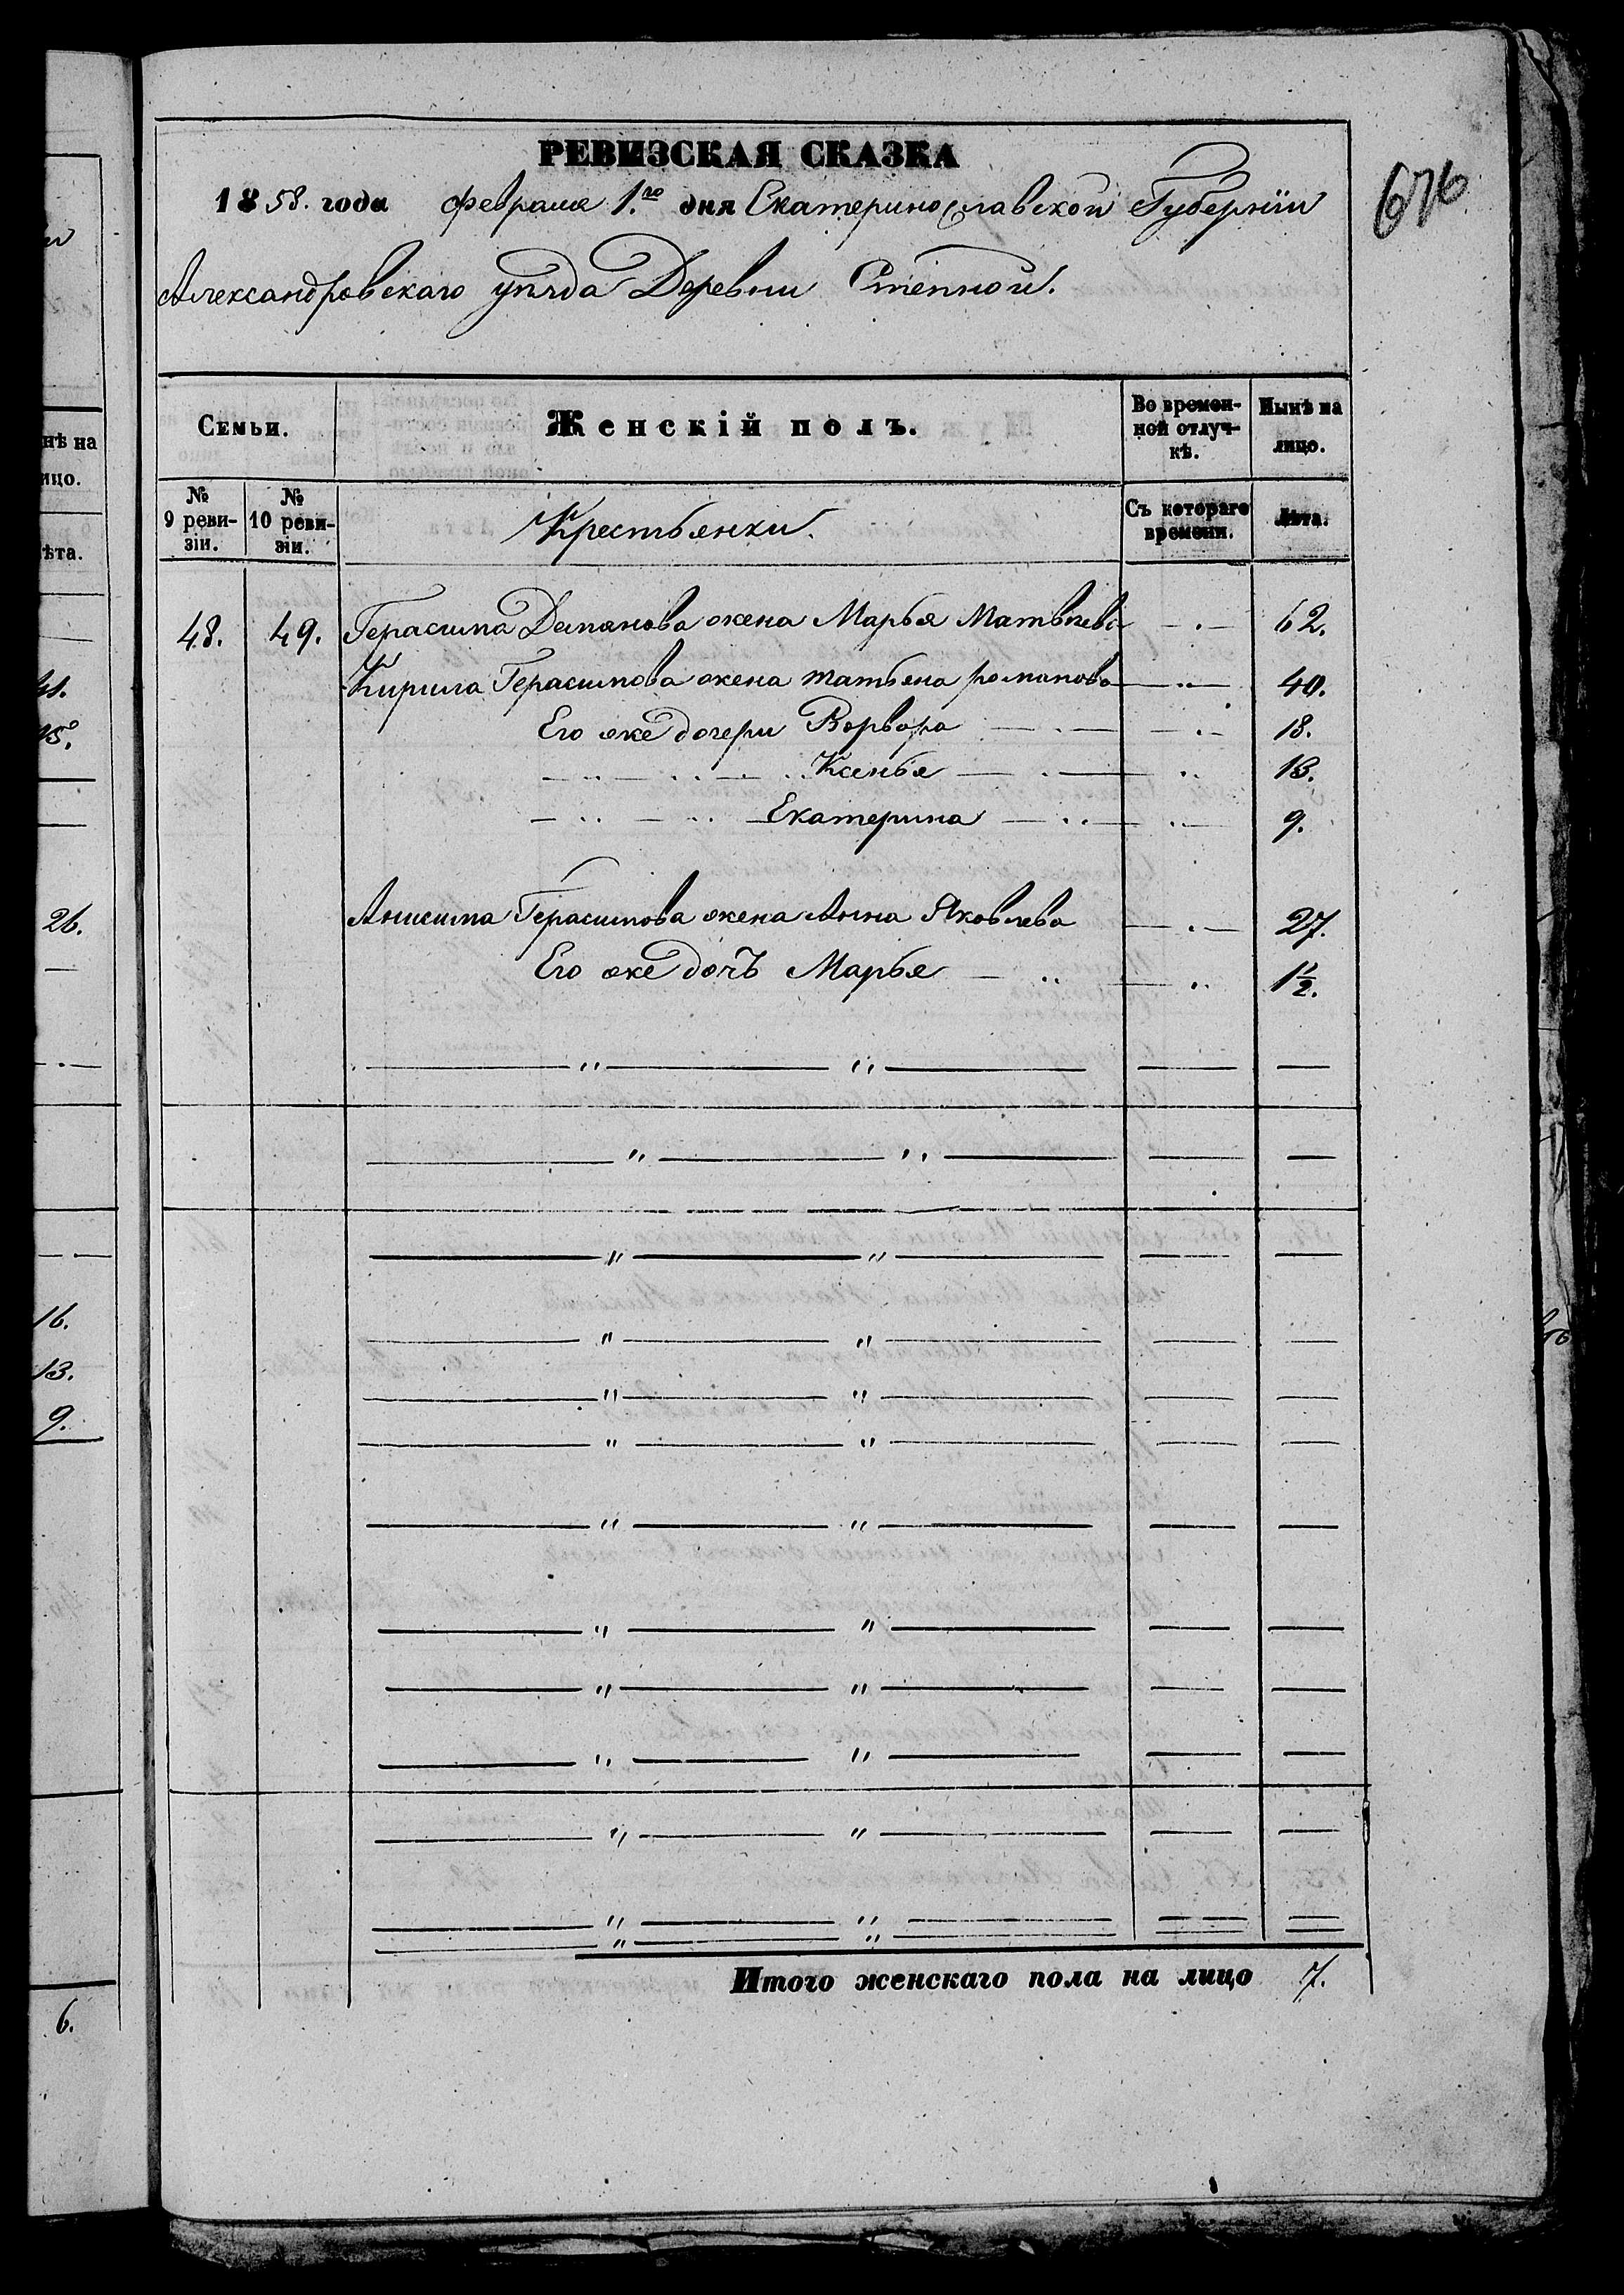 РЕВИЗСКАЯ СКАЗКА
1858. года февраля 1.го дня Екатеринославской Губернiи
676
Александровскаго уѣзда Деревни Степной.
Семьи.
Женскій полъ.
Во времен-
ной отлуч-
кѣ.
Нынѣ на
лицо.
№
9 реви-
зіи.
№
10 реви-
зіи.
Крестьянки.
Съ котораго
времени.
Лѣта.
48. 49. Герасима Демянова жена Марья Матвѣева — . — 62.
Кирила Герасимова жена татьяна романова — .. — 40.
Его же дочери Ворвара — . — — . — 18.
— .. — .. — .. Ксенья — . — .. 13.
— .. — .. — Екатерина — .. — .. — 9.
Анисима Герасимова жена Анна Яковлева — . — 27.
Его же дочъ Марья — .. — .. 1½.
Итого женскаго пола на лицо 7.
нѣ на
ицо.
ѣта.
26.
16.
13.
9.
6.